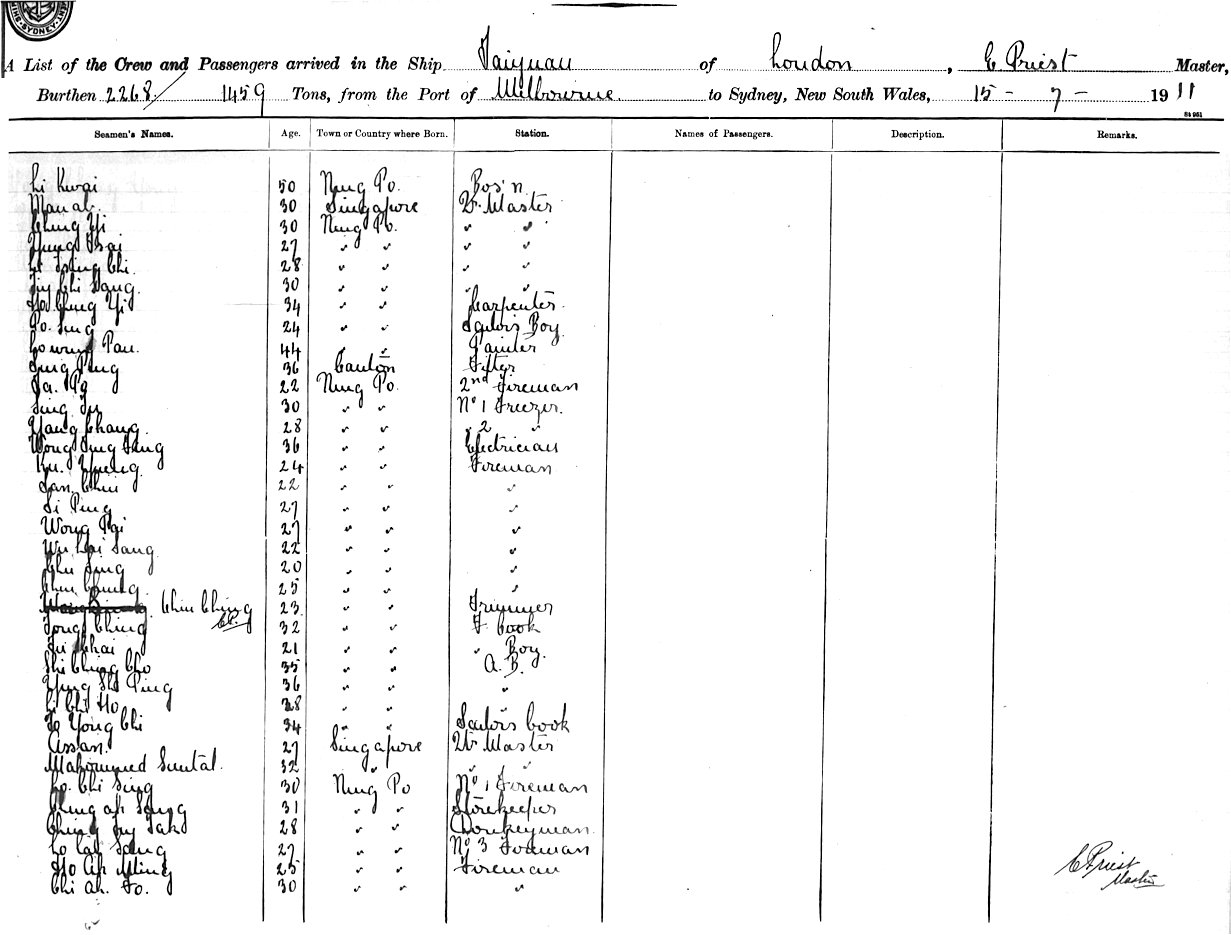 SYDNEY
A List of the Crew and Passengers arrived in the Ship Taiyuan of London, E Priest Master,
Burthen 2268/ 1459 Tons, from the Port of Melbourne to Sydney, New South Wales, 15 - 7 - 1911
84951
Seamen's Names. Age. Town or Country where Born. Station. Names of Passengers. Description. Remarks.
Li Kwai 50 Ning Po. Bos'n.
Manab. 30 Singapore Qr. Master
Ching Yi 30 Ning Po. " "
Yung Tsai 27 " " " "
28 " " " "
30 " " " "
Ho Ching Yi 34 " " Carpenter
Po. Sing 24 " " Sailors Boy
Pau. 44 " " Painter
36 Canton Fitter
22 Ning Po. 2nd Fireman
30 " " No 1 Freezer.
Yang Chang. 28 " " " 2 "
Wong 36 " " Electrician
24 " " Fireman
22 " " "
Li Ping 27 " " "
Wong Pai 27 " " "
Wu Sang 22 " " "
Chu Sing 20 " " "
25 " " "
Chin Ching 23 " " Trimmer
Tong Ching 32 " " F Cook
21 " " " Boy.
Shi Ching Cho 35 " " A. B.
Ping 36 " " "
Li Chi Ho 28 " " "
Yong Chi 34 " " Sailors Cook
Assan. 27 Singapore Qr Master
Mahommed 32 " " "
Lo. Chi Sing 30 Ning Po No 1 Fireman
Ching ah Song 31 " " Storekeeper
Ching 28 " " Donkeyman.
27 " " No 3 Fireman
Ho Ah Ming 25 " " Fireman
Chi Ah. Fo. 30 " " "
E Priest
Master